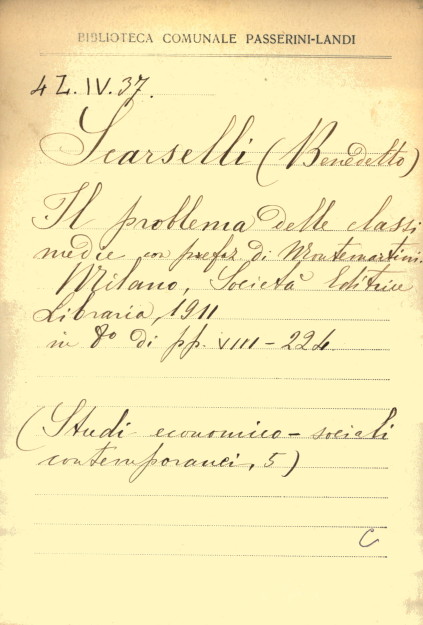 BIBLIOTECA COMUNALE PASSERINI-LANDI
4 Z. IV. 37.
Scarselli (Benedetto)
Il problema delle classi
medie con prefaz di Montemartini.
Milano, Società Editrice
Libraria, 1911
in 8º di pp. VIII - 224
(Studi economico - sociali
contemporanei, 5)
C